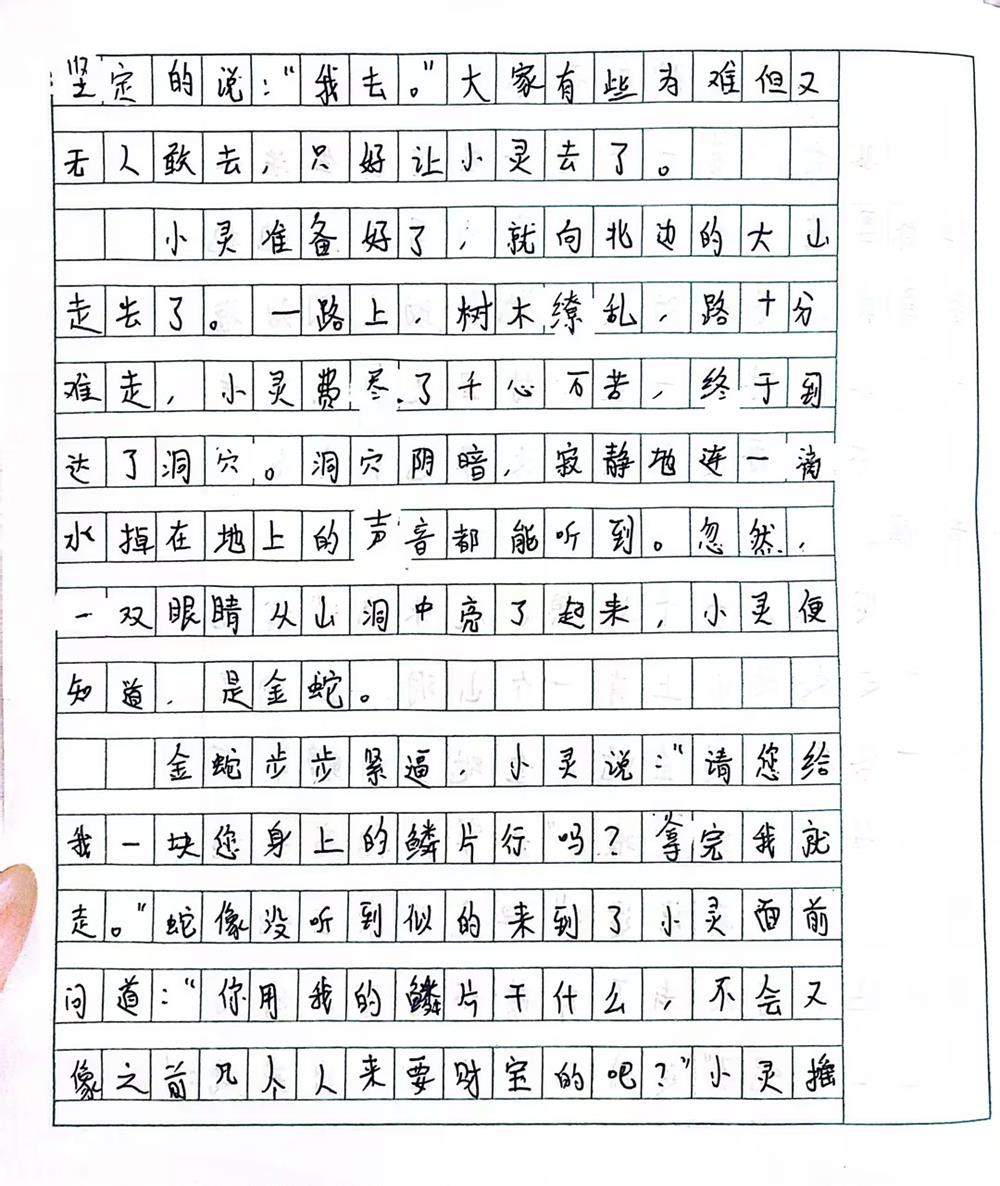 坚定的说：“我去。”大家有些为难但又
无人敢去，只好让小灵去了。
小灵准备好了，就向北边的大山
走去了。一路上，树木缭乱，路十分
难走，小灵费尽了千心万苦，终于到
达了洞穴。洞穴阴暗，寂静地连一滴
水掉在地上的声音都能听到。忽然，
一双眼睛从山洞中亮了起来，小灵便
知道，是金蛇。
金蛇步步紧逼，小灵说：“请您给
我一块您身上的鳞片行吗？拿完我就
走。”蛇像没听到似的来到了小灵面前
问道：“你用我的鳞片干什么，不会又
像之前几个人来要财宝的吧？”小灵摇